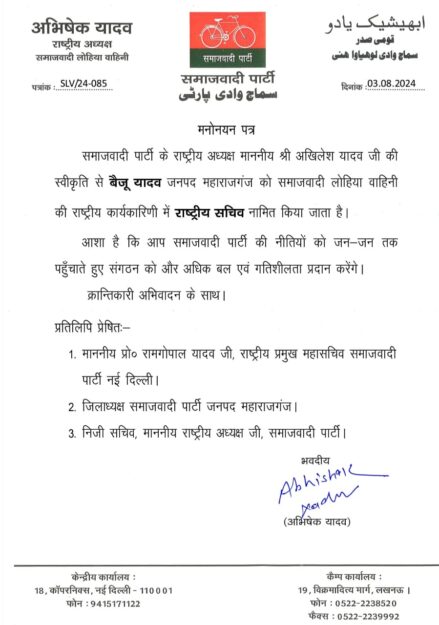 अभिषेक यादव
राष्ट्रीय अध्यक्ष
समाजवादी लोहिया वाहिनी
पत्रांक: SLV/24-085
समाजवादी पार्टी
समाजवादी पार्टी
سماج وادی پارٹی
ابھیشیک یادو
قومی صدر
سماج وادی لوھیاوا ھنی
दिनांक :03.08.2024
मनोनयन पत्र
समाजवादी पार्टी के राष्ट्रीय अध्यक्ष माननीय श्री अखिलेश यादव जी की
स्वीकृति से बैजू यादव जनपद महाराजगंज को समाजवादी लोहिया वाहिनी
की राष्ट्रीय कार्यकारिणी में राष्ट्रीय सचिव नामित किया जाता है।
आशा है कि आप समाजवादी पार्टी की नीतियों को जन–जन तक
पहुँचाते हुए संगठन को और अधिक बल एवं गतिशीलता प्रदान करेंगे।
क्रान्तिकारी अभिवादन के साथ।
प्रतिलिपि प्रेषितः–
1. माननीय प्रो० रामगोपाल यादव जी, राष्ट्रीय प्रमुख महासचिव समाजवादी
पार्टी नई दिल्ली।
2. जिलाध्यक्ष समाजवादी पार्टी जनपद महाराजगंज।
3. निजी सचिव, माननीय राष्ट्रीय अध्यक्ष जी, समाजवादी पार्टी।
भवदीय
Abhishek
Yadav
(अभिषेक यादव)
केन्द्रीय कार्यालय :
18, कॉपरनिक्स, नई दिल्ली - 110001
फोन : 9415171122
कैम्प कार्यालय :
19, विक्रमादित्य मार्ग, लखनऊ ।
फोन : 0522-2238520
फैक्स : 0522-2239992